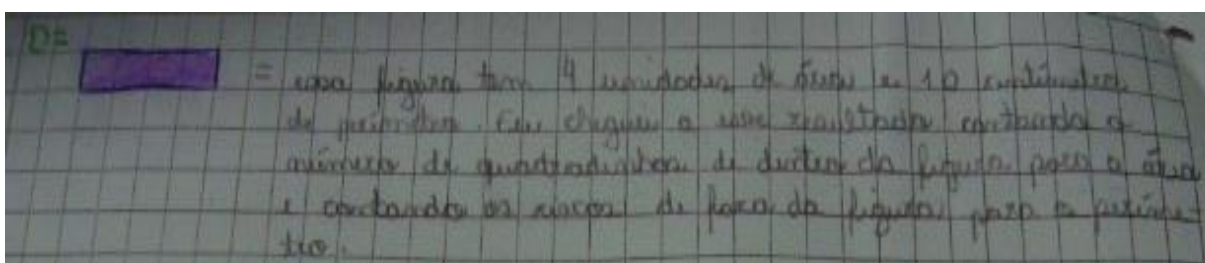 D=
= essa figura tem 4 unidades de área e 10 centímetros
de perímetro. Eu cheguei a esse resultado contando o
número de quadradinhos de dentro da figura para a área
e contando os riscos de fora da figura para o períme-
tro.